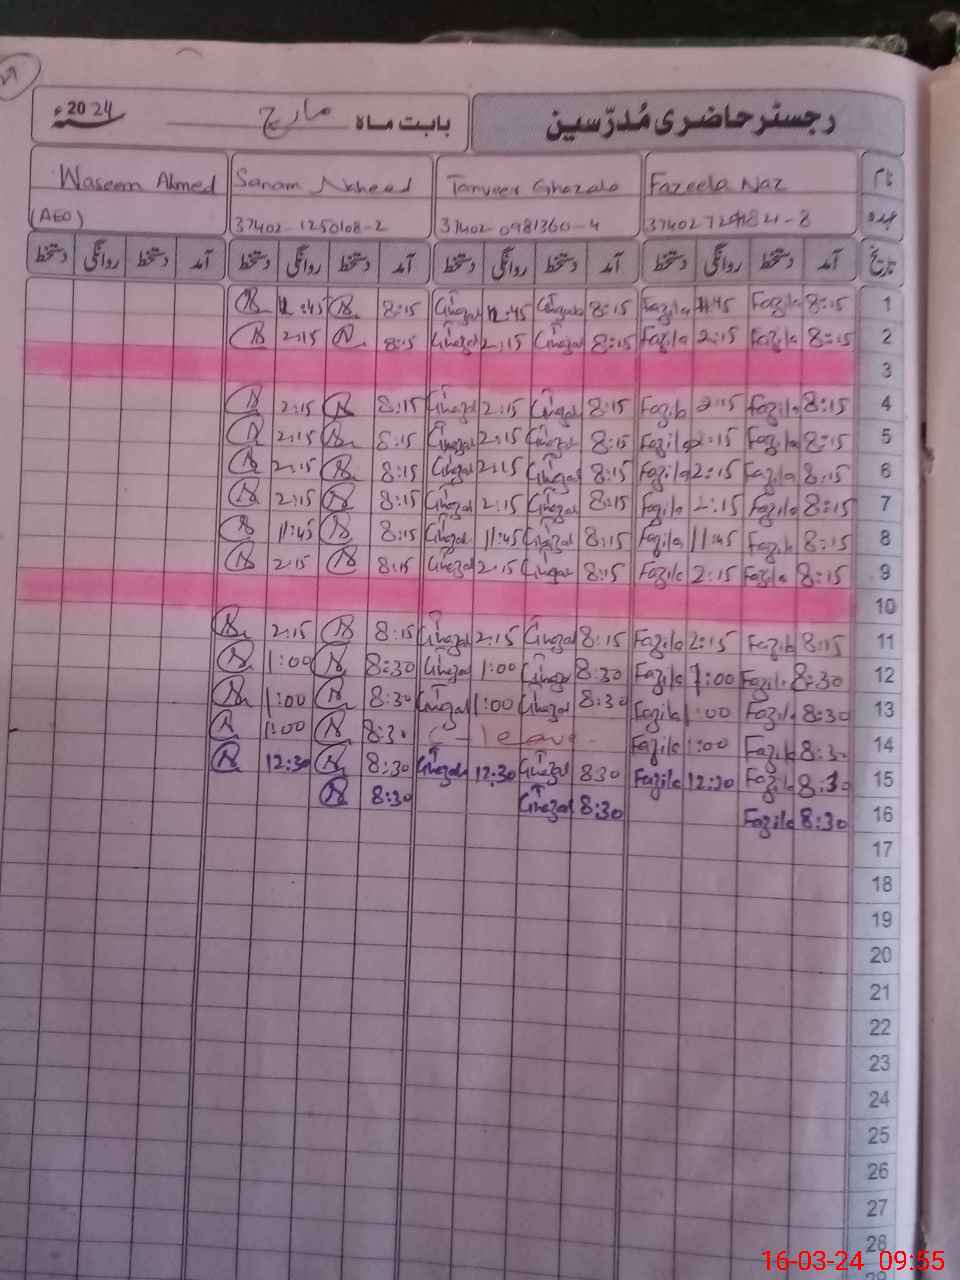 رجسٹر حاضری مُدرّسین بابت ماہ مارچ 2024ء
نام Fazeela Naz Tanveer Ghazala Sanam Naheed Waseem Ahmed
عہدہ 37402-0981360-4 37402-1250108-2 (AEO)
تاریخ آمد دستخط روانگی دستخط آمد دستخط روانگی دستخط آمد دستخط روانگی دستخط آمد دستخط روانگی دستخط
1 8:15 Fazila Fazila 8:15 Ghazal Ghazal 8:15
2 8:15 Fazila 2:15 Fazila 8:15 Ghazal 2:15 Ghazal 8:15 2:15
3
4 8:15 Fazila 2:15 Fazila 8:15 Ghazal 2:15 Ghazal 8:15 2:15
5 8:15 Fazila 2:15 Fazila 8:15 Ghazal 2:15 Ghazal 8:15 2:15
6 8:15 Fazila 2:15 Fazila 8:15 Ghazal 2:15 Ghazal 8:15 2:15
7 8:15 Fazila 2:15 Fazila 8:15 Ghazal 2:15 Ghazal 8:15 2:15
8 8:15 Fazila 11:45 Fazila 8:15 Ghazal 11:45 Ghazal 8:15 11:45
9 8:15 Fazila 2:15 Fazila 8:15 Ghazal 2:15 Ghazal 8:15 2:15
10
11 8:15 Fazila 2:15 Fazila 8:15 Ghazal 2:15 Ghazal 8:15 2:15
12 8:30 Fazila 1:00 Fazila 8:30 Ghazal 1:00 Ghazal 8:30 1:00
13 8:30 Fazila 1:00 Fazila 8:30 Ghazal 1:00 Ghazal 8:30 1:00
14 8:30 Fazila 1:00 Fazila C-leave 8:30 1:00
15 8:30 Fazila 12:30 Fazila 8:30 Ghazal 12:30 Ghazal 8:30 12:30
16 8:30 Fazila 8:30 Ghazal 8:30
17
18
19
20
21
22
23
24
25
26
27
28
16-03-24 09:55